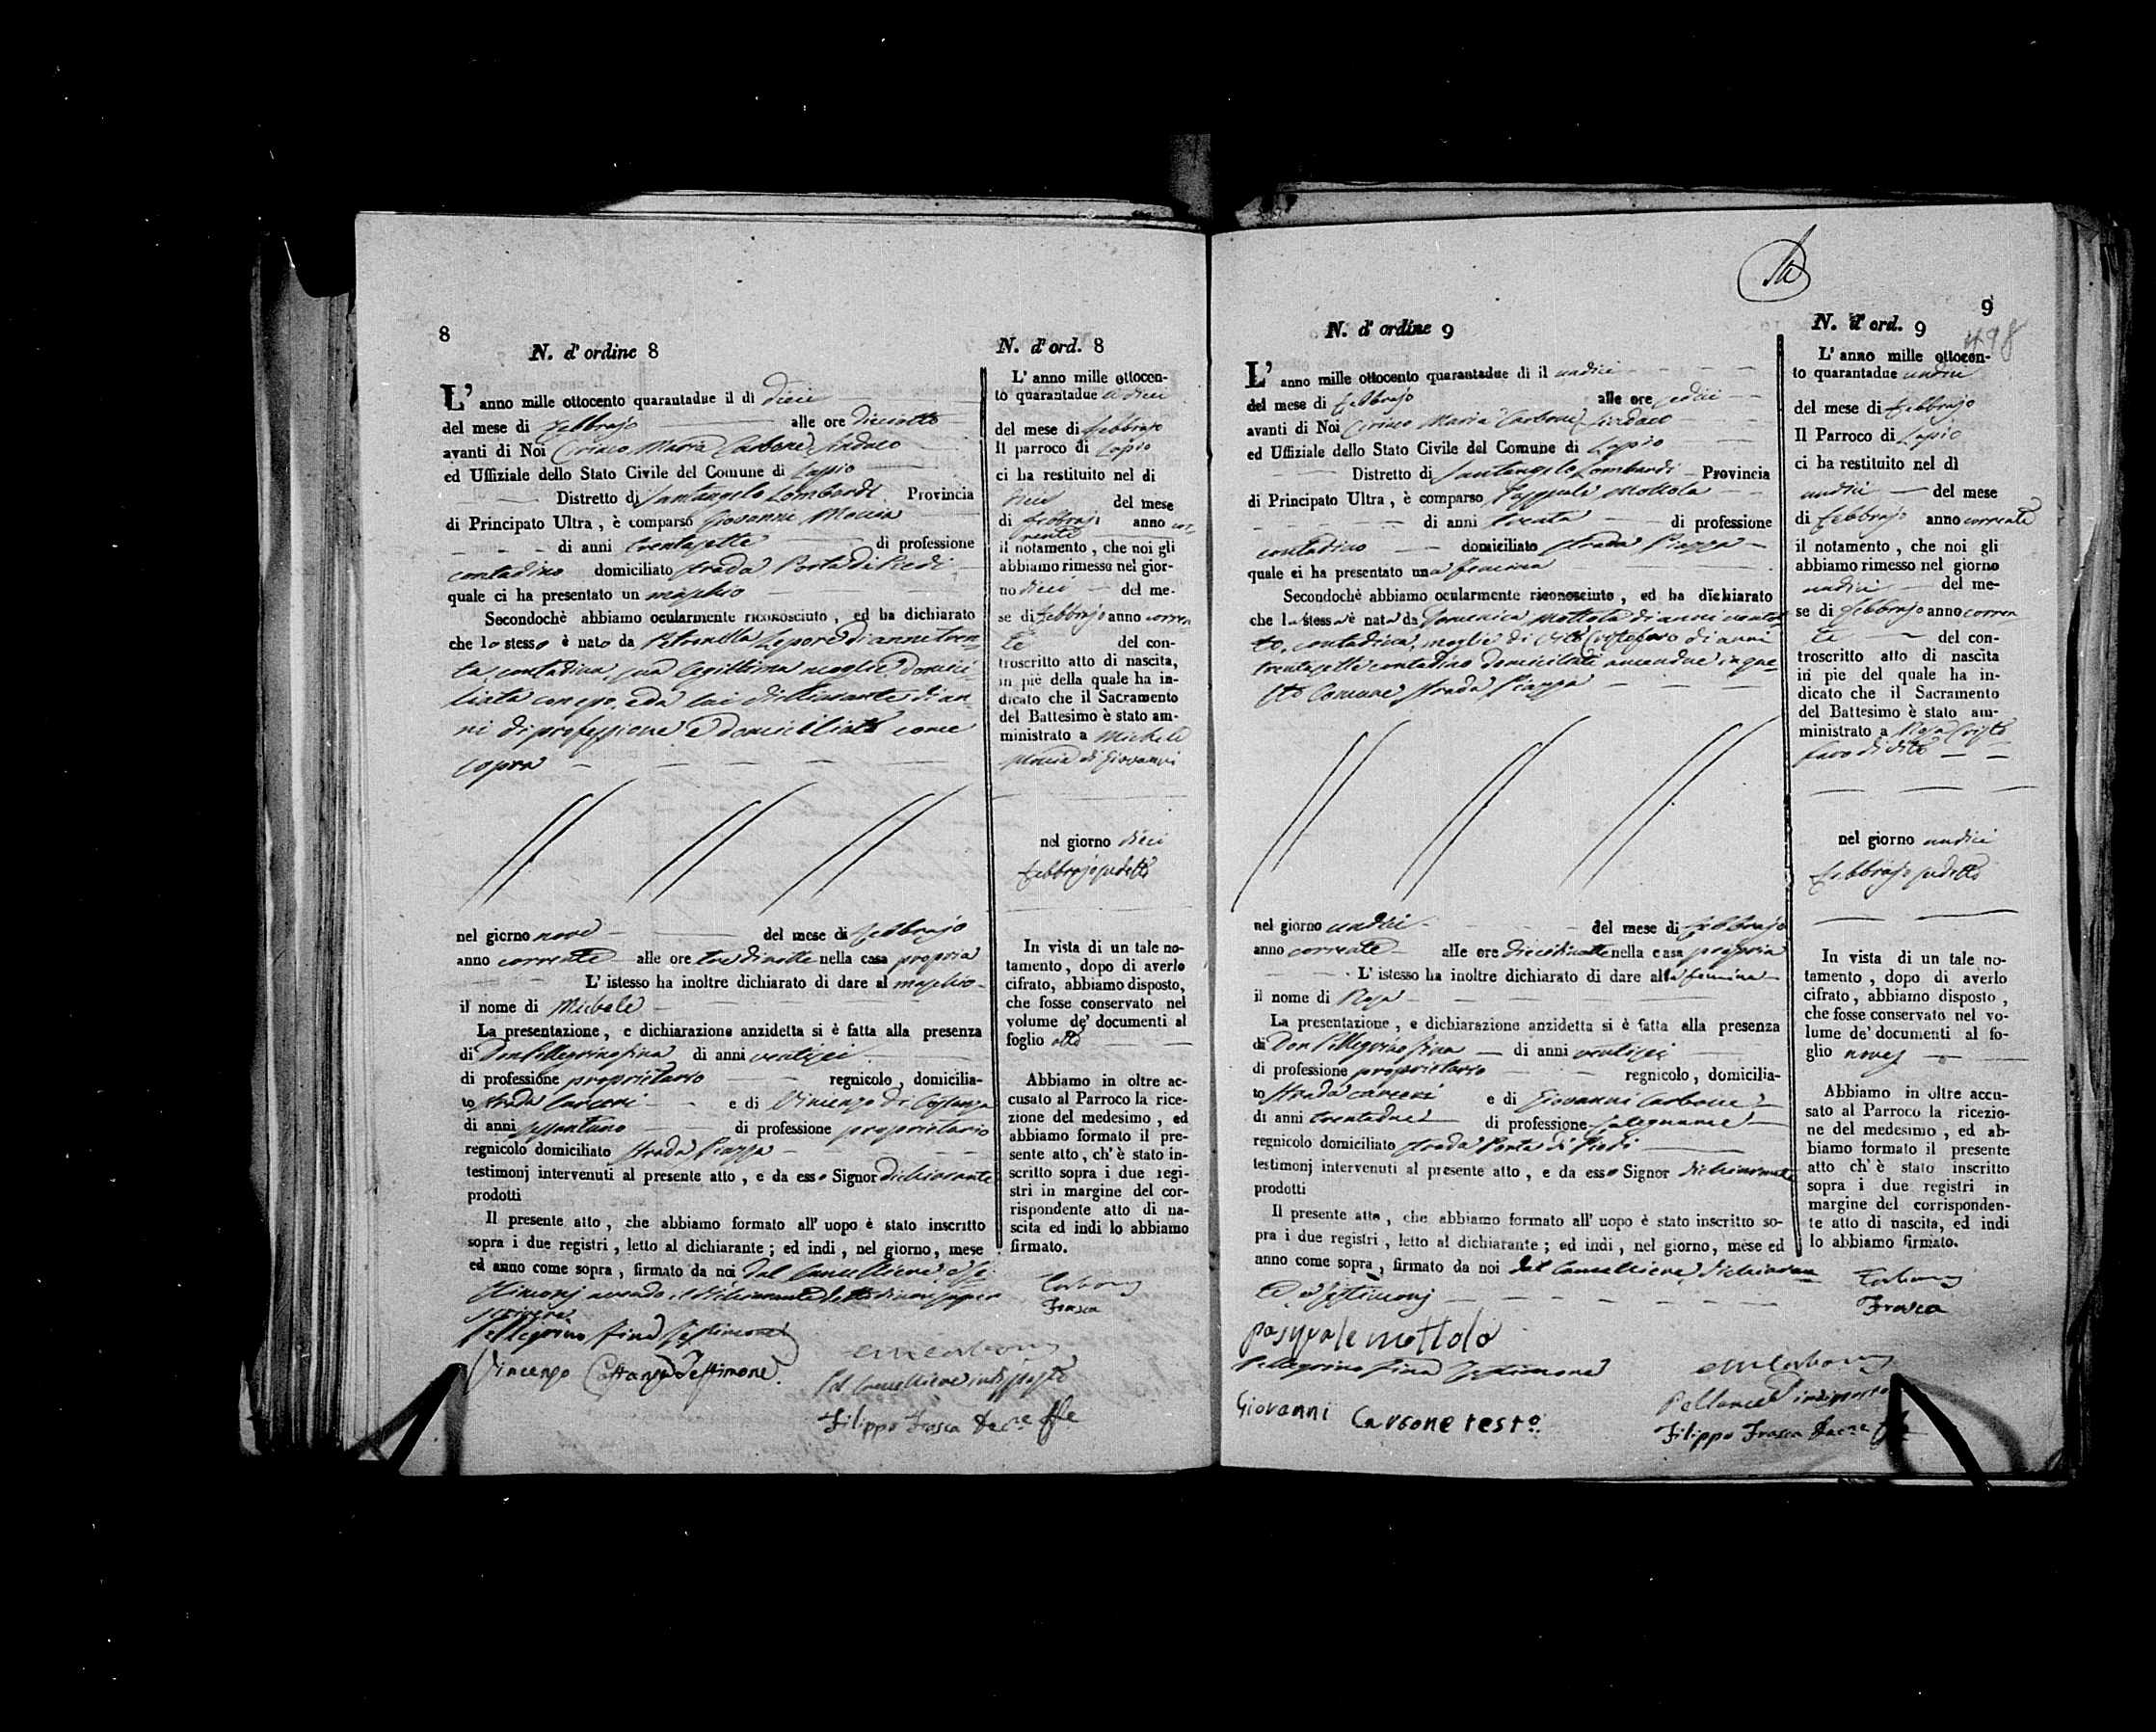 8
N. d' ordine 8
L' anno mille ottocento quarantadue il dì dieci
del mese di Febbrajo alle ore dieciotto
avanti di Noi Ciriaco Maria Carbone Sindaco
ed Uffiziale dello Stato Civile del Comune di Lapio
Distretto di Santangelo Lombardi Provincia
di Principato Ultra, è comparso Giovanni
di anni trentasette di professione
contadino domiciliato strada Porta di Piedi
quale ci ha presentato un maschio
Secondochè abbiamo ocularmente riconosciuto, ed ha dichiarato
che lo stesso è nato da Petronilla Lepore di anni tren-
ta, contadina, sua legittima moglie domici-
liata con esso, e da lui dichiarante di an-
ni di professione e domiciliato come
sopra
nel giorno nove del mese di Febbrajo
anno corrente alle ore tre di notte nella casa propria
L' istesso ha inoltre dichiarato di dare al maschio
il nome di Michele
La presentazione, e dichiarazione anzidetta si è fatta alla presenza
di Don Pellegrino Fina di anni ventisei
di professione proprietario regnicolo, domicilia-
to strada Carceri e di Vincenzo di Costanza
di anni sessantuno di professione proprietario
regnicolo domiciliato strada Piazza
testimonj intervenuti al presente atto, e da esso Signor dichiarante
prodotti
Il presente atto, che abbiamo formato all' uopo è stato inscritto
sopra i due registri, letto al dichiarante; ed indi, nel giorno, mese
ed anno come sopra, firmato da noi dal Cancelliere, e te-
stimonj avendo il dichiarante detto di non saper
scrivere
Pellegrino Fina Testimone
Vincenzo Costanza Testimone
Filippo Frasca
N. d' ord. 8
L' anno mille ottocen-
to quarantadue a dieci
del mese di Febbrajo
Il parroco di Lapio
ci ha restituito nel di
dieci del mese
di Febbrajo anno cor-
rente
il notamento, che noi gli
abbiamo rimesso nel gior-
no dieci del me-
se di Febbrajo anno corren
te del con-
troscritto atto di nascita,
in piè della quale ha in-
dicato che il Sacramento
del Battesimo è stato am-
ministrato a Michele
di Giovanni
nel giorno dieci
Febbrajo sudetto
In vista di un tale no-
tamento, dopo di averlo
cifrato, abbiamo disposto,
che fosse conservato nel
volume de' documenti al
foglio otto
Abbiamo in oltre ac-
cusato al Parroco la rice-
zione del medesimo, ed
abbiamo formato il pre-
sente atto, ch' è stato in-
scritto sopra i due regi-
stri in margine del cor-
rispondente atto di na-
scita ed indi lo abbiamo
firmato.
Carbone
Frasca
9
498
N. d' ordine 9
L' anno mille ottocento quarantadue di il undici
del mese di Febbrajo alle ore sedici
avanti di Noi Ciriaco Maria Carbone Sindaco
ed Uffiziale dello Stato Civile del Comune di Lapio
Distretto di Santangelo Lombardi Provincia
di Principato Ultra, è comparso Pasquale Mottola
di anni trenta di professione
contadino domiciliato strada Piazza
quale ci ha presentato una femina
Secondochè abbiamo ocularmente riconosciuto, ed ha dichiarato
che la stessa è nata da Domenica Mottola di anni
contadina, moglie di Vito Cristofaro di anni
trentasette contadino domiciliati amendue in que-
sto Comune strada Piazza
nel giorno undici del mese di Febbrajo
anno corrente alle ore dieci di notte nella casa propria
L' istesso ha inoltre dichiarato di dare alla femina
il nome di Rosa
La presentazione, e dichiarazione anzidetta si è fatta alla presenza
di Don Pellegrino Fina di anni ventisei
di professione proprietario regnicolo, domicilia-
to strada carceri e di Giovanni Carbone
di anni trentadue di professione falegname
regnicolo domiciliato strada Porta di Piedi
testimonj intervenuti al presente atto, e da esso Signor dichiarante
prodotti
Il presente atto, che abbiamo formato all' uopo è stato inscritto so-
pra i due registri, letto al dichiarante; ed indi, nel giorno, mese ed
anno come sopra, firmato da noi dal Cancelliere, dichiaran
te, e testimonj
pasquale mottola
Pellegrino Fina Testimone
Giovanni Carbone testo
Filippo Frasca
N. d' ord. 9
L' anno mille ottocen-
to quarantadue undici
del mese di Febbrajo
Il Parroco di Lapio
ci ha restituito nel dì
undici del mese
di Febbrajo anno corrente
il notamento, che noi gli
abbiamo rimesso nel giorno
undici del me-
se di Febbrajo anno corren
te del con-
troscritto atto di nascita
in pie del quale ha in-
dicato che il Sacramento
del Battesimo è stato am-
ministrato a Rosa Cristo
faro di Vito
nel giorno undici
Febbrajo sudetto
In vista di un tale no-
tamento, dopo di averlo
cifrato, abbiamo disposto,
che fosse conservato nel vo-
lume de' documenti al fo-
glio nove
Abbiamo in oltre accu-
sato al Parroco la ricezio-
ne del medesimo, ed ab-
biamo formato il presente
atto ch' è stato inscritto
sopra i due registri in
margine del corrisponden-
te atto di nascita, ed indi
lo abbiamo firmato.
Carbone
Frasca